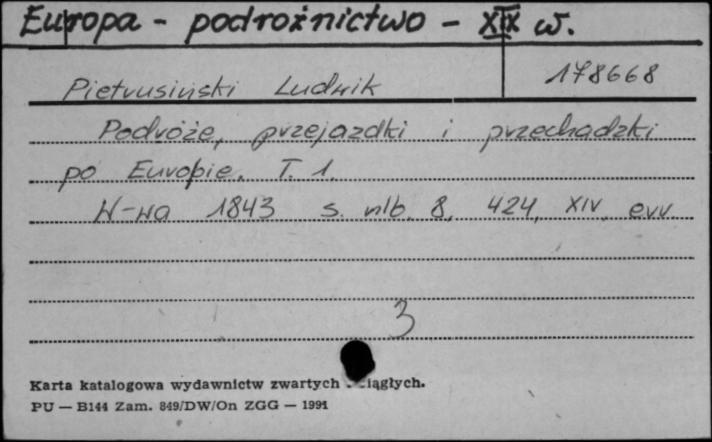 Europa - podrożnictwo - XIX w.
Pietrusiński Ludwik 178668
Podróże, przejazdki i przechadzki
po Europie. T. 1.
W-wa 1843 s. nlb. 8, 424, XIV, err.
3
Karta katalogowa wydawnictw zwartych ciągłych.
PU — B144 Zam. 849/DW/On ZGG — 1991